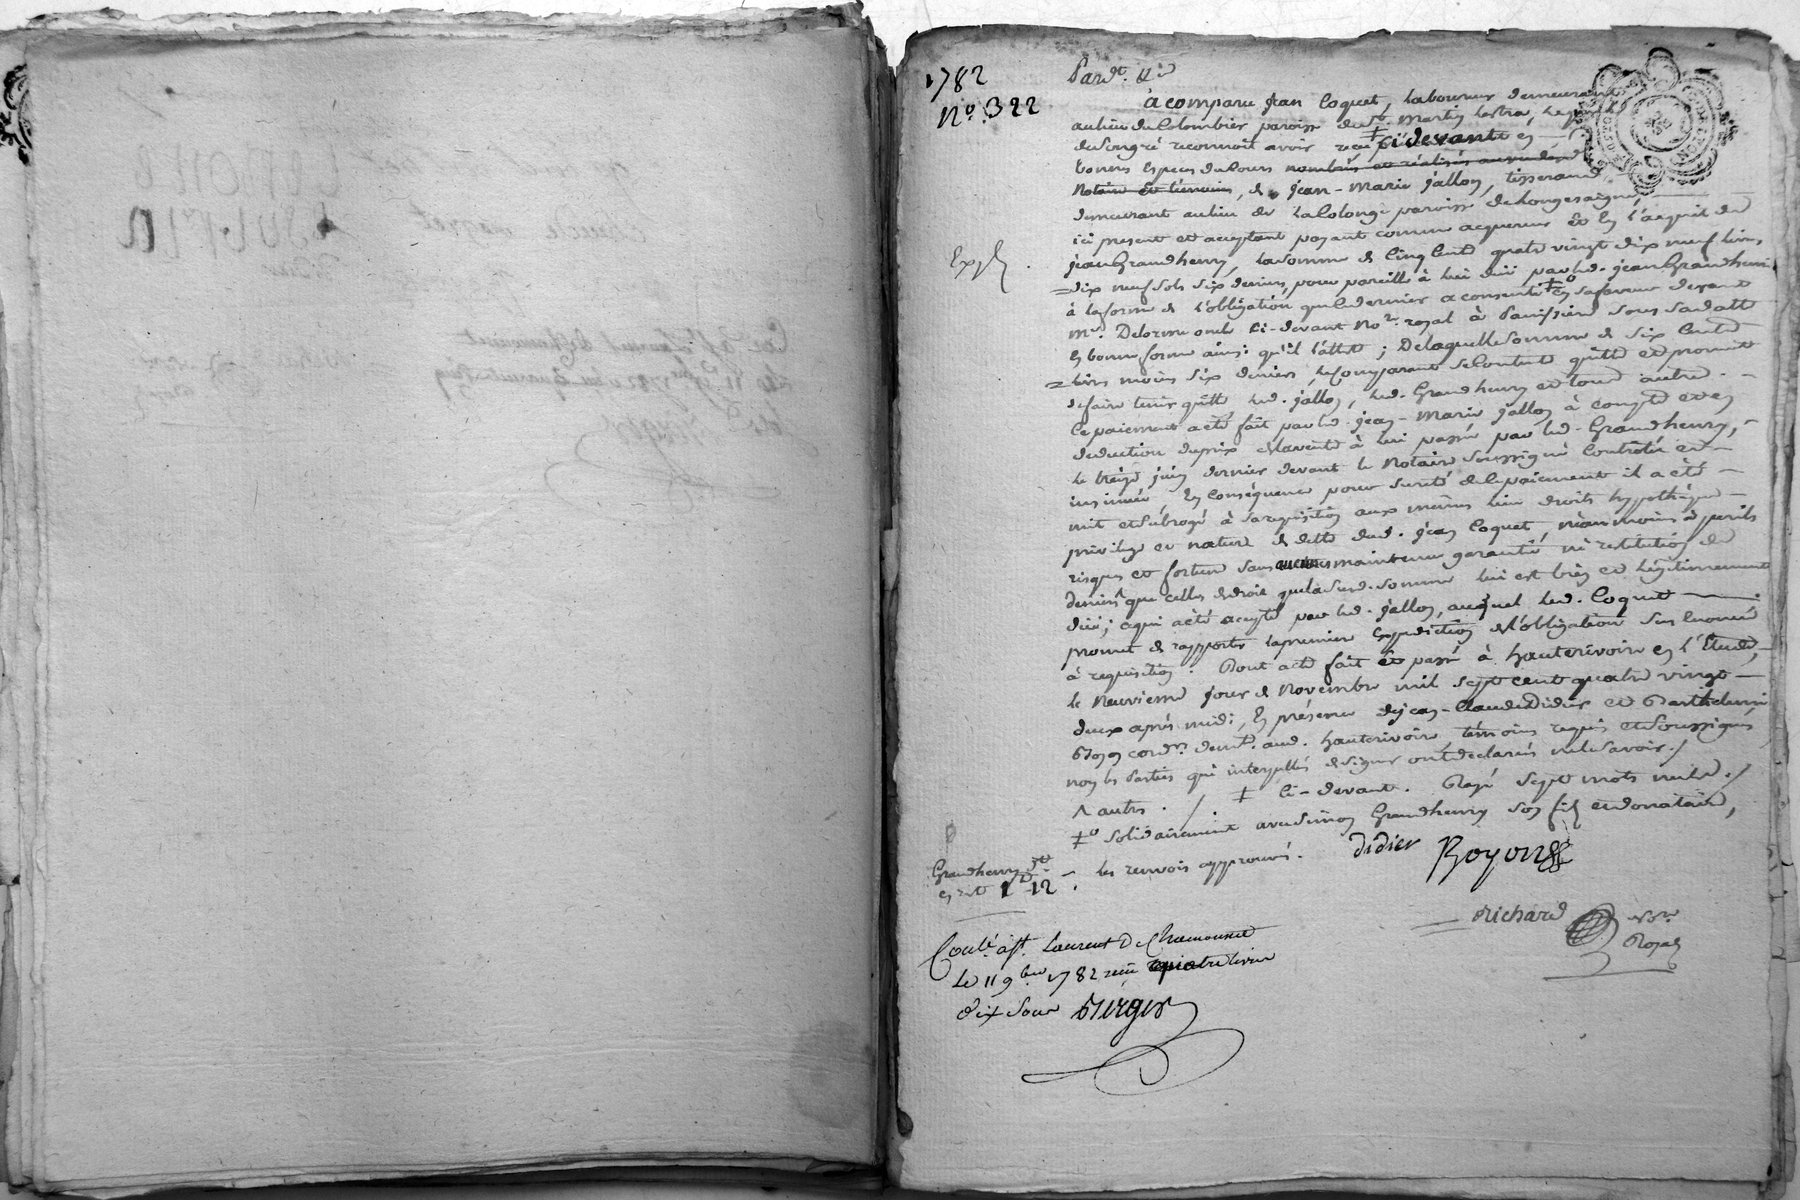 1782
N.o 322
Pardt. Md
a comparu jean Coquet, laboureur demeurant
au lieu du Colombier paroisse de St. Martin lestra, lequel
de son gré reconnoit avoir reçu ci devant en
bonnes Especes du Cours nombrés et réalisés au vu desd.
Notaire et témoins, de jean-marie jallon, tisserand,
demeurant au lieu de La Colonge paroisse de Longessaigne,
ici present et acceptant payant comme acquereur et En l'acquit de
jean Grandhenry, La Somme de Cinq Cent quatre vingt dix neuf livres
Exp.
dix neuf sols six deniers, pour pareille à lui düe par led. jean Grandhenri
à la forme de l'obligation que ce dernier a consenti en sa faveur devant
me. Delorme oncle Ci-devant Nore. royal à Panissiere Sous Sa datte
En bonne forme ainsi qu'il l'atteste; De laquelle Somme de Six Cents
livres moins six deniers, le Comparant se Contente quitte et promet
de faire tenir quitte led. jallon, led. Grandhenry et tous autres.
Ce paiement a été fait par led. jean-Marie jallon à compte et en
deduction du prix de la vente à lui passée par led. Grandhenry,
le treize juin dernier devant le Notaire soussigné Controlée et
insinuée En Conséquence pour sureté de ce paiement il a été
mit et subrogé à sa requisition aux mêmes lieu droits hypotheque
privilege et nature de dette dud. jean Coquet, néanmoins à perils
risques et fortune sans aucunes maintenue garantie ni restitution de
deniers ^ que celles de droit que la susd. somme lui est bien et légitimement
düe; ce qui a été accepté par led. jallon, auquel led. Coquet
promet de rapporter la premiere Expedition de l'obligation Sus énoncée
à requisition. Dont acte fait Et passé à hauterivoire en l'Étude,
le Neuvieme jour de Novembre mil sept cent quatre vingt
deux après midi, En présence de jean-Claude Didier et Barthelemi
Royon cordr. demt. aud. hauterivoire témoins requis et soussignés,
non les Parties qui interpellés de signer ont declarés ne le savoir./.
^ autres ./. ‡ Ci-devant. Rayé sept mots nuls./.
‡o solidairement avec Simon Grandhenry son fils et donataire,
les renvois approuvés.
Didier Royon
Grandhenry
1 12
Richard Nore
Royal
Conlé. à St. Laurent De Chamousset
Le 11 9bre 1782 reçu quatre livres
dix sous Berger